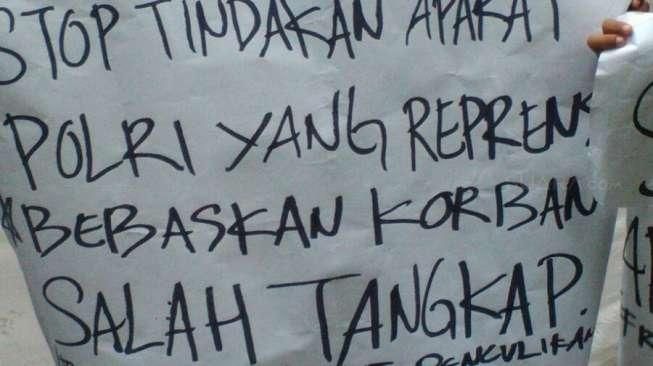 STOP TINDAKAN APARAT
POLRI YANG REPRENS
BEBASKAN KORBAN
SALAH TANGKAP.
PENCULIKAN